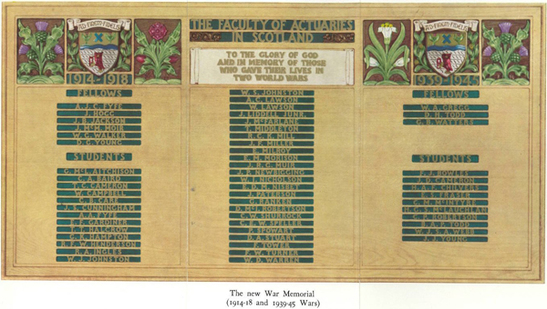 AD FINEM FIDELIS
AD FINEM FIDELIS
THE FACULTY OF ACTUARIES
IN SCOTLAND
TO THE GLORY OF GOD
AND IN MEMORY OF THOSE
WHO GAVE THEIR LIVES IN
TWO WORLD WARS
1914-1918
FELLOWS
A. J. C. FYFE
J. HOGG
J. B. JACKSON
J. McM. MOIR
W. C. WALKER
D. G. YOUNG
STUDENTS
G. McL. AITCHISON
C. A. BAIRD
T. C. CAMERON
W. CAMPBELL
G. B. CARE
J. S. CUNNINGHAM
A. A. FYFE
E. J. GARDINER
T. T. HALCROW
G. K. HAMPTON
R. F. W. HENDERSON
R. A. INGLES
W. J. JOHNSTON
W. S. JOHNSTON
A. C. LAWSON
W. LAWSON
J. LIDDELL JUNR
J. McFARLANE
T. MIDDLETON
R. C. H. MILL
J. F. MILLER
E. MILROY
E. M. MORISON
J. R. G. MUIR
J. P. NEWBIGGING
W. I. NICHOLSON
E. D. W. NISBET
J. PATERSON
G. RANKEN
D. McL. ROBERTSON
C. W. SHURROCK
C. F. W. SPELLER
P. SPOWART
D. A. STUART
F. TOWER
F. W. TURNER
W. D. WARREN
1939-1945
FELLOWS
W. A. GREGG
D. H. TODD
G. B. WATTERS
STUDENTS
F. J. BOWLES
J. D. CAMERON
M. A. F. CHILVERS
E. T. FRASER
C. M. McINTYRE
C. S. McLAUCHLAN
C. F. ROBERTSON
B. A. F. TODD
W. J. S. A. WEBB
J. S. YOUNG
The new War Memorial
(1914-18 and 1939-45 Wars)